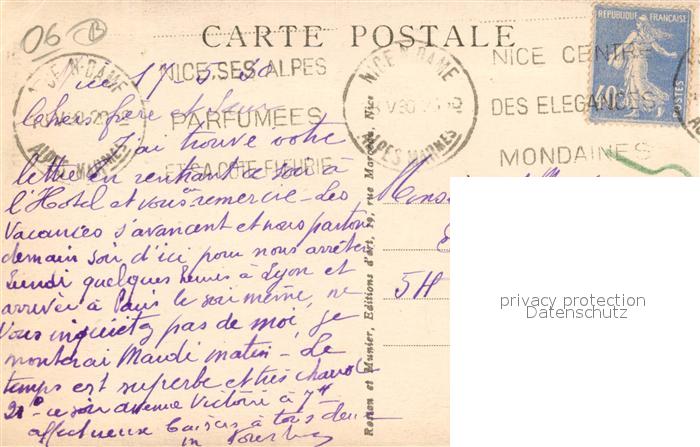 06 B
CARTE POSTALE
RÉPUBLIQUE FRANÇAISE
40c
POSTES
NICE N-DAME
ALPES MARMES
NICE, SES ALPES
PARFUMÉES
ET SA CÔTE FLEURIE
NICE N-DAME
V30
ALPES MARMES
NICE CENTRE
DES ELEGANCES
MONDAINES
Nice 17-5-30
Chers frère et
J'ai trouvé votre
lettre en rentrant ce soir à
l'Hotel et vous remercie - Les
vacances s'avancent et nous partons
demain soir d'ici pour nous arrêter
Lundi quelques heures à Lyon et
arrivée à Paris le soir même, ne
vous inquiétez pas de moi, je
monterai Mardi matin - Le
temps est superbe et très chaud
21° ce soir avenue Victoire à 7H
affectueux baisers à tous deux
Rostan et Munier, Editions d'art, 19, rue Nice
5H
privacy protection
Datenschutz